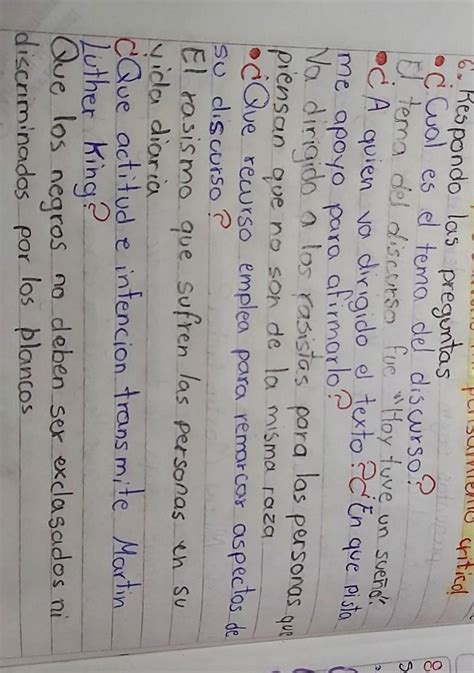 pensamiento critico!
6. Respondo las preguntas
• ¿Cual es el tema del discurso?
El tema del discurso fue "Hoy tuve un sueño".
• ¿A quien va dirigido el texto? ¿En que pista
me apoyo para afirmarlo?
Va dirigido a los rasistas para las personas que
piensan que no son de la misma raza
• ¿Que recurso emplea para remarcar aspectos de
su discurso?
El rasismo que sufren las personas en su
vida diaria
¿Que actitud e intencion transmite Martin
Luther King?
Que los negros no deben ser exclasados ni
discriminados por los blancos